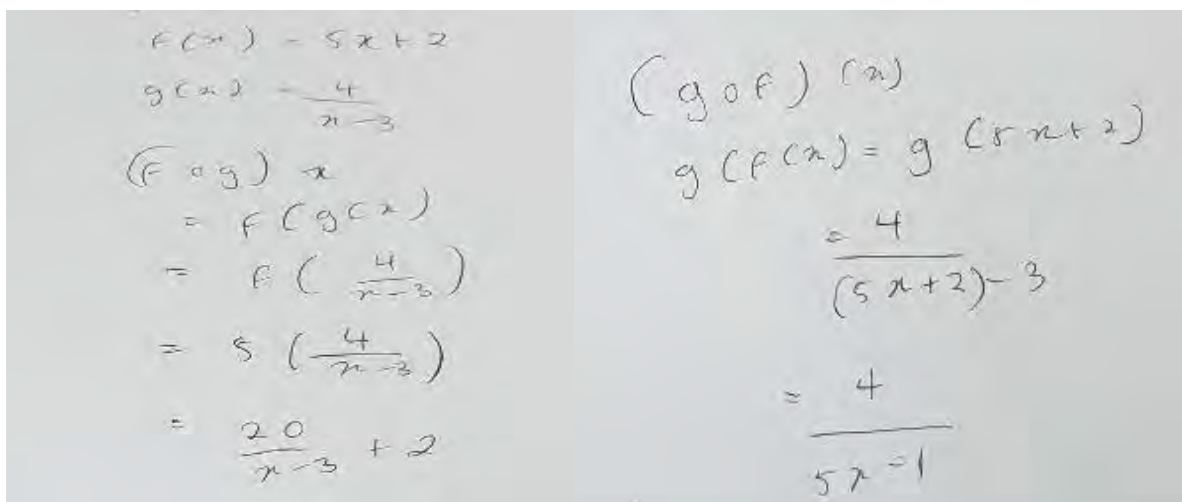 f(x) = 5x + 2
g(x) = 4/(x-3)
(f o g) x
= f(g(x)
= f(4/(x-3))
= 5(4/(x-3))
= 20/(x-3) + 2
(g o f)(x)
g(f(x) = g(5x+2)
= 4/((5x+2)-3)
= 4/(5x-1)